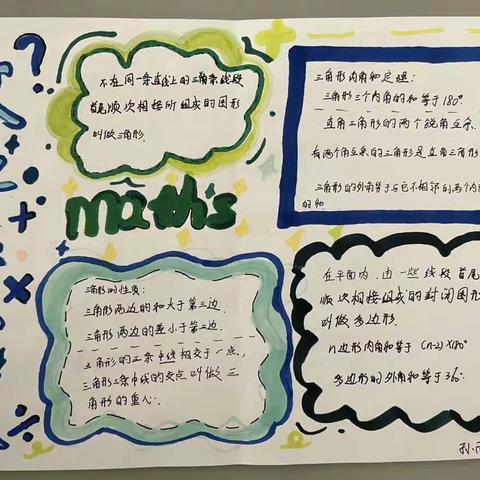 不在同一条直线上的三角条线段
首尾顺次相接所组成的图形
叫做三角形.
maths
三角形内角和定理:
三角形三个内角的和等于180°
直角三角形的两个锐角互余.
有两个角互余的三角形是直角三角形
三角形的外角等于与它不相邻的两个内
的和.
三角形的性质:
三角形两边的和大于第三边.
三角形两边的差小于第三边.
三角形的三条中线相交于一点,
三角形三条中线的交点叫做三
角形的重心.
在平面内,由一些线段首尾
顺次相接组成的封闭图形
叫做多边形.
n边形内角和等于 (n-2)×180°
多边形的外角和等于360°.
孙